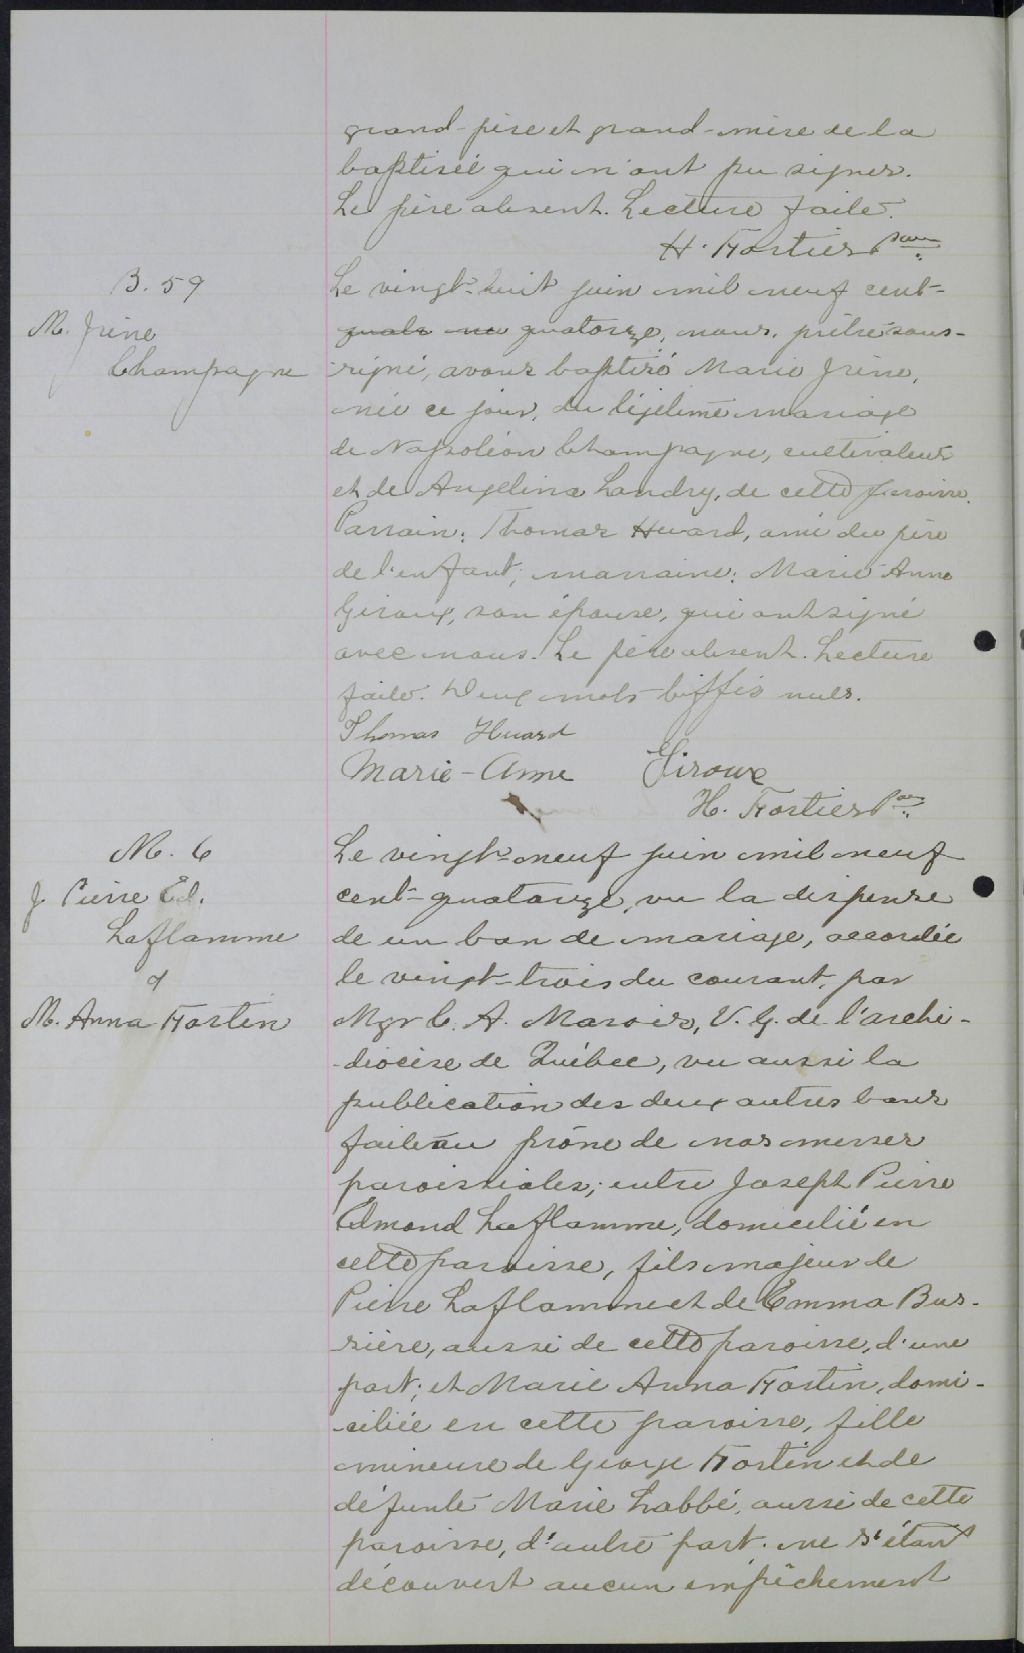 grand-père et grand-mère de la
baptisée qui n'ont pu signer.
Le père absent. Lecture faite.
H. Fortier Ptre
B. 59
M. Irène
Champagne
Le vingt-huit juin mil neuf cent-
quatorze, nous, prêtre sous-
-signé, avons baptisé Marie Irène,
née ce jour, du légitime mariage
de Napoléon Champagne, cultivateur
et de Angelina Landry, de cette paroisse.
Parrain: Thomas Huard, ami du père
de l'enfant; marraine: Marie-Anne
Giroux, son épouse, qui ont signé
avec nous. Le père absent. Lecture
faite. Deux mots biffés nuls.
Thomas Huard
Marie-Anne Giroux
H. Fortier Ptre
M. 6
J Pierre Ed.
Laflamme
&
M. Anna Fortin
Le vingt-neuf juin mil neuf
cent-quatorze, vu la dispense
de un ban de mariage, accordée
le vingt-trois du courant, par
Mgr C. A. Marois, V. G. de l'archi-
-diocèse de Québec, vu aussi la
publication des deux autres bans
faite au prône de nos messes
paroissiales; entre Joseph Pierre
Edmond Laflamme, domicilié en
cette paroisse, fils majeur de
Pierre Laflamme et de Emma Bus-
-sière, aussi de cette paroisse, d'une
part; et Marie Anna Fortin, domi-
-ciliée en cette paroisse, fille
mineure de George Fortin et de
défunte Marie Labbé, aussi de cette
paroisse, d'autre part. ne s'étant
découvert aucun empêchement